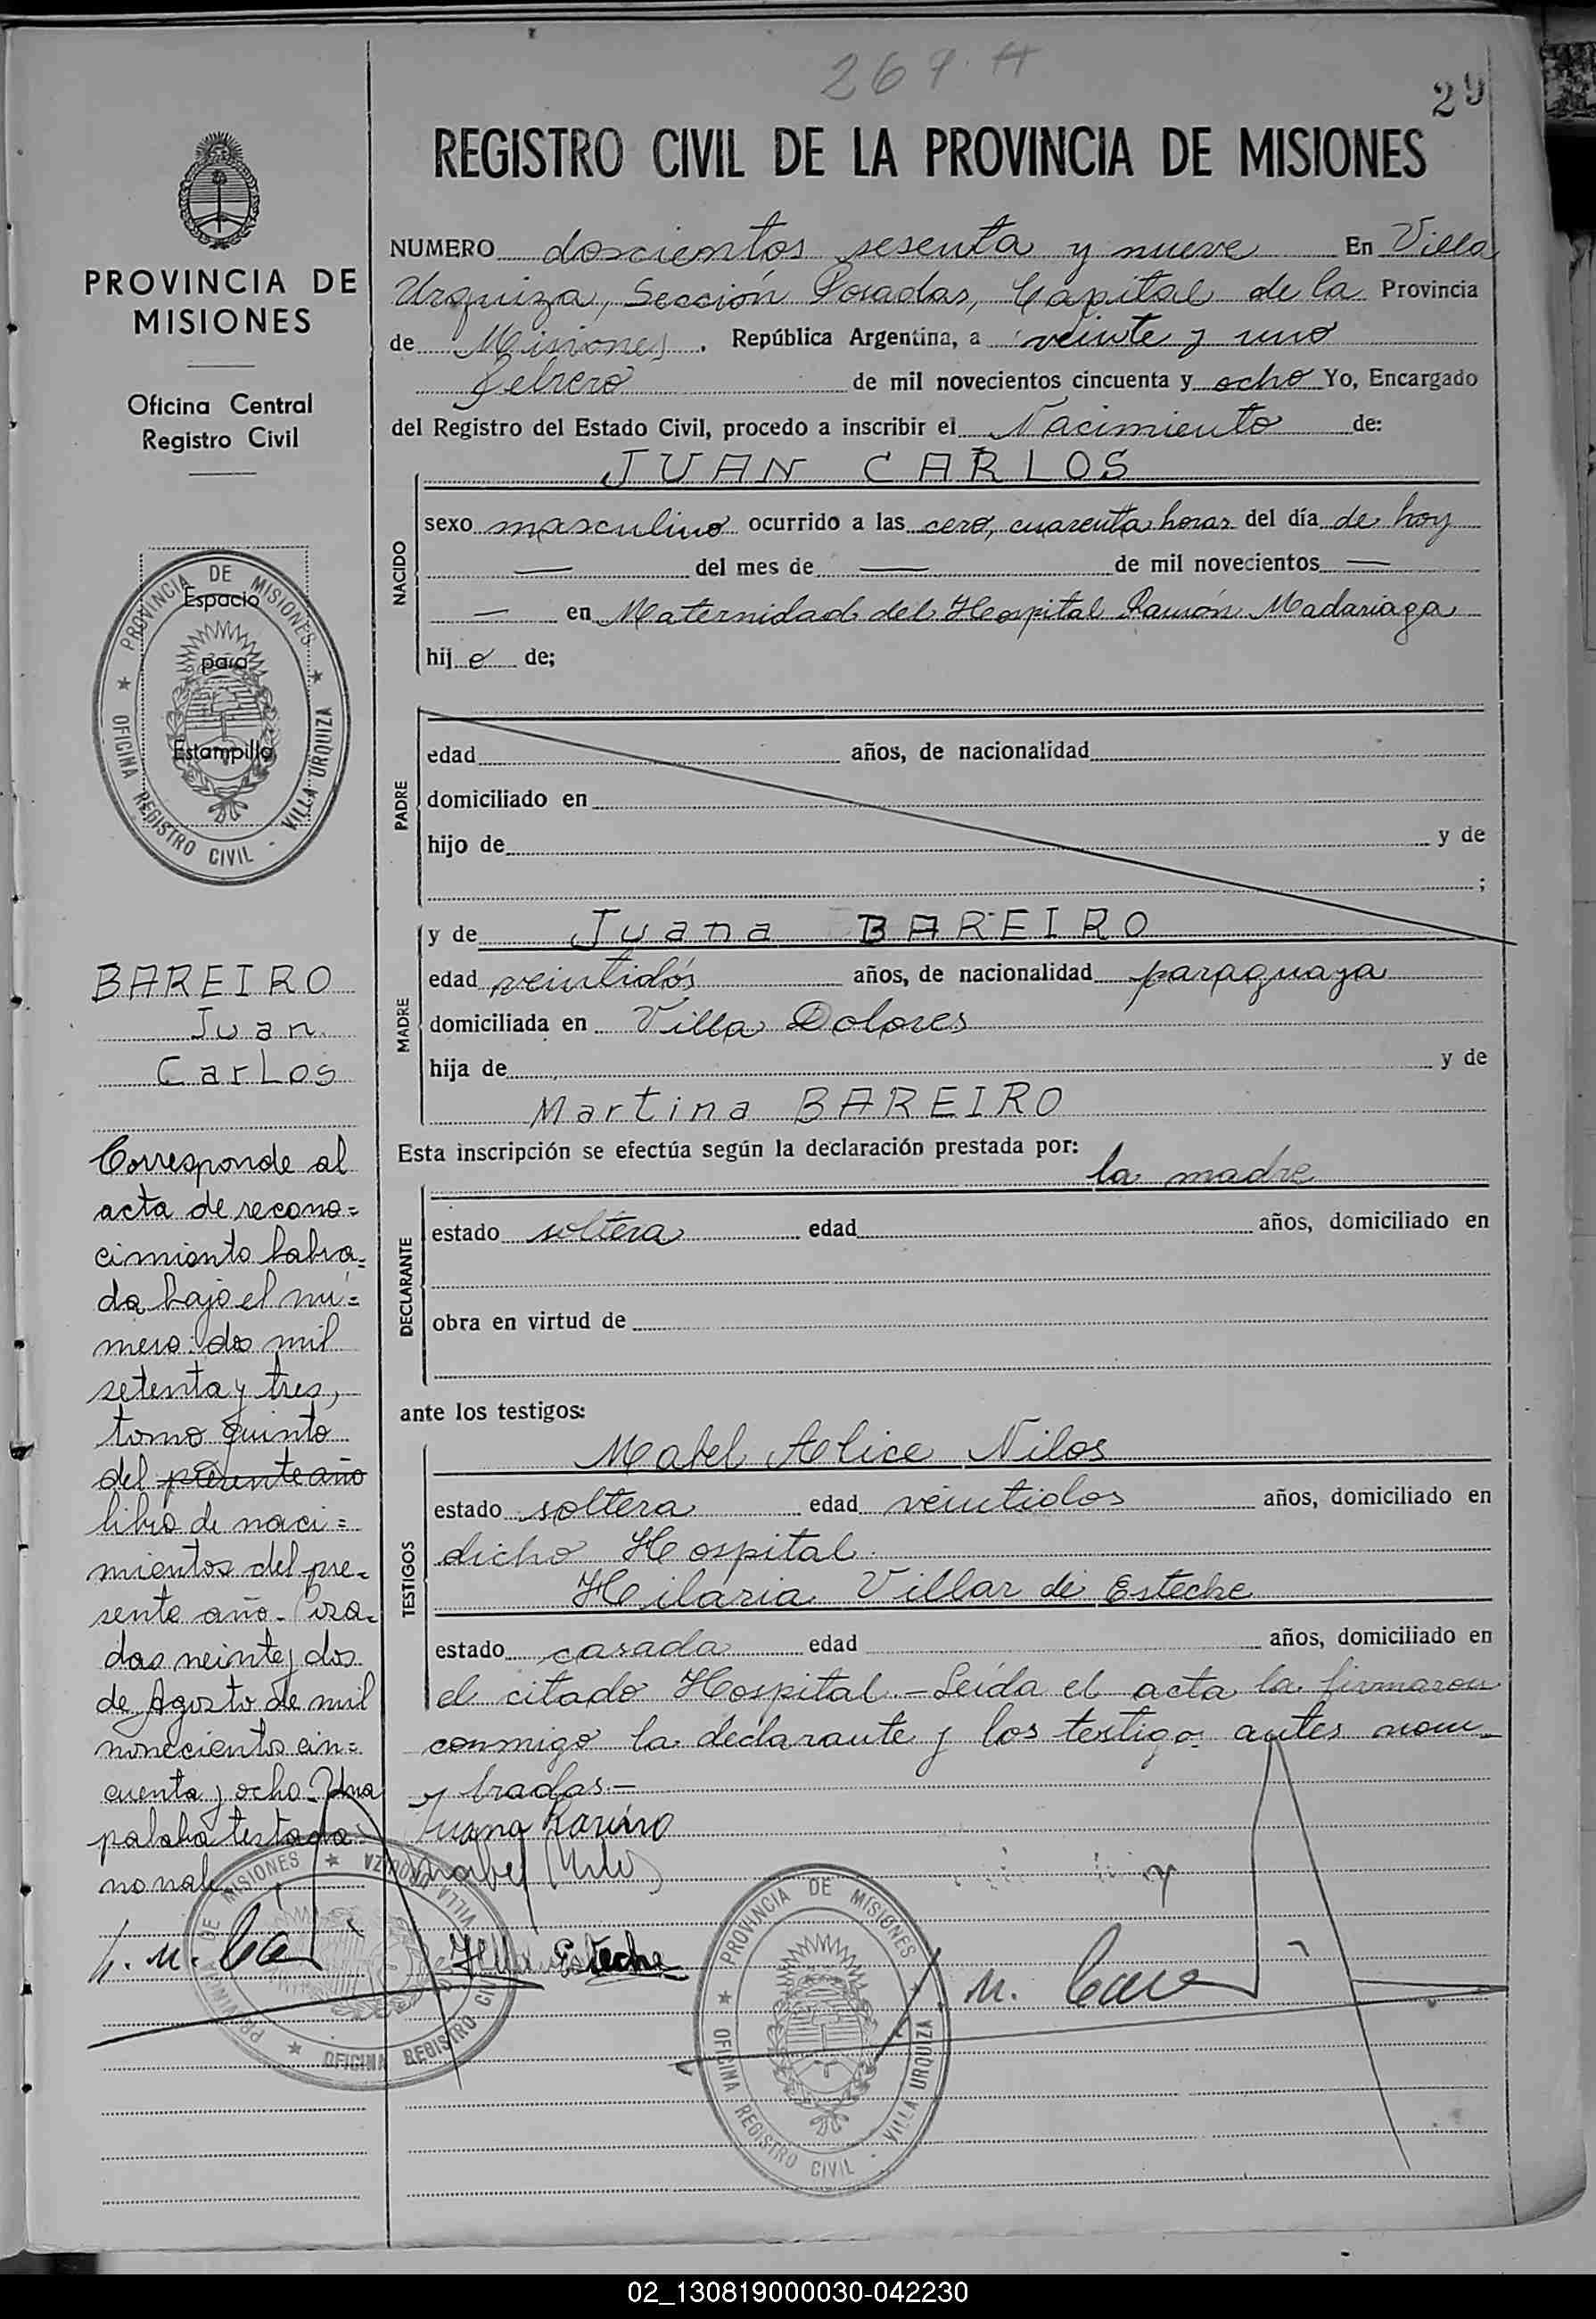 267 A
29
REGISTRO CIVIL DE LA PROVINCIA DE MISIONES
PROVINCIA DE
MISIONES
Oficina Central
Registro Civil
NUMERO doscientos sesenta y nueve En Villa
Urquiza, Sección Posadas, Capital de la Provincia
de Misiones, República Argentina, a veinte y uno
febrero de mil novecientos cincuenta y ocho Yo, Encargado
del Registro del Estado Civil, procedo a inscribir el Nacimiento de:
JUAN CARLOS
NACIDO
sexo masculino ocurrido a las cero, cuarenta horas del día de hoy
— del mes de — de mil novecientos —
— en Maternidad del Hospital Ramón Madariaga
hijo de;
PROVINCIA DE MISIONES
OFICINA REGISTRO CIVIL - VILLA URQUIZA
Espacio
para
Estampilla
PADRE
edad años, de nacionalidad
domiciliado en
hijo de y de
;
MADRE
y de Juana BAREIRO
edad veintidós años, de nacionalidad paraguaya
domiciliada en Villa Dolores
hija de y de
Martina BAREIRO
Esta inscripción se efectúa según la declaración prestada por:
la madre
DECLARANTE
estado soltera edad años, domiciliado en
obra en virtud de
ante los testigos:
TESTIGOS
Mabel Alice Nilos
estado soltera edad veintidos años, domiciliado en
dicho Hospital.
Hilaria Villar de Esteche
estado casada edad años, domiciliado en
el citado Hospital.- Leída el acta la firmaron
conmigo la declarante y los testigos antes nom-
bradas.-
Juana Bareiro
Mabel Nilos
Hila Esteche
BAREIRO
Juan
Carlos
Corresponde al
acta de recono=
cimiento labra=
da bajo el nú=
mero: dos mil
setenta y tres,
tomo quinto
del presente año
libro de naci=
mientos del pre-
sente año. Posa-
das veinte y dos
de Agosto de mil
novecientos cin=
cuenta y ocho. Una
palabra testada:
no vale.
PROVINCIA DE MISIONES
OFICINA REGISTRO CIVIL VILLA URQUIZA
PROVINCIA DE MISIONES
OFICINA REGISTRO CIVIL - VILLA URQUIZA
02_130819000030-042230